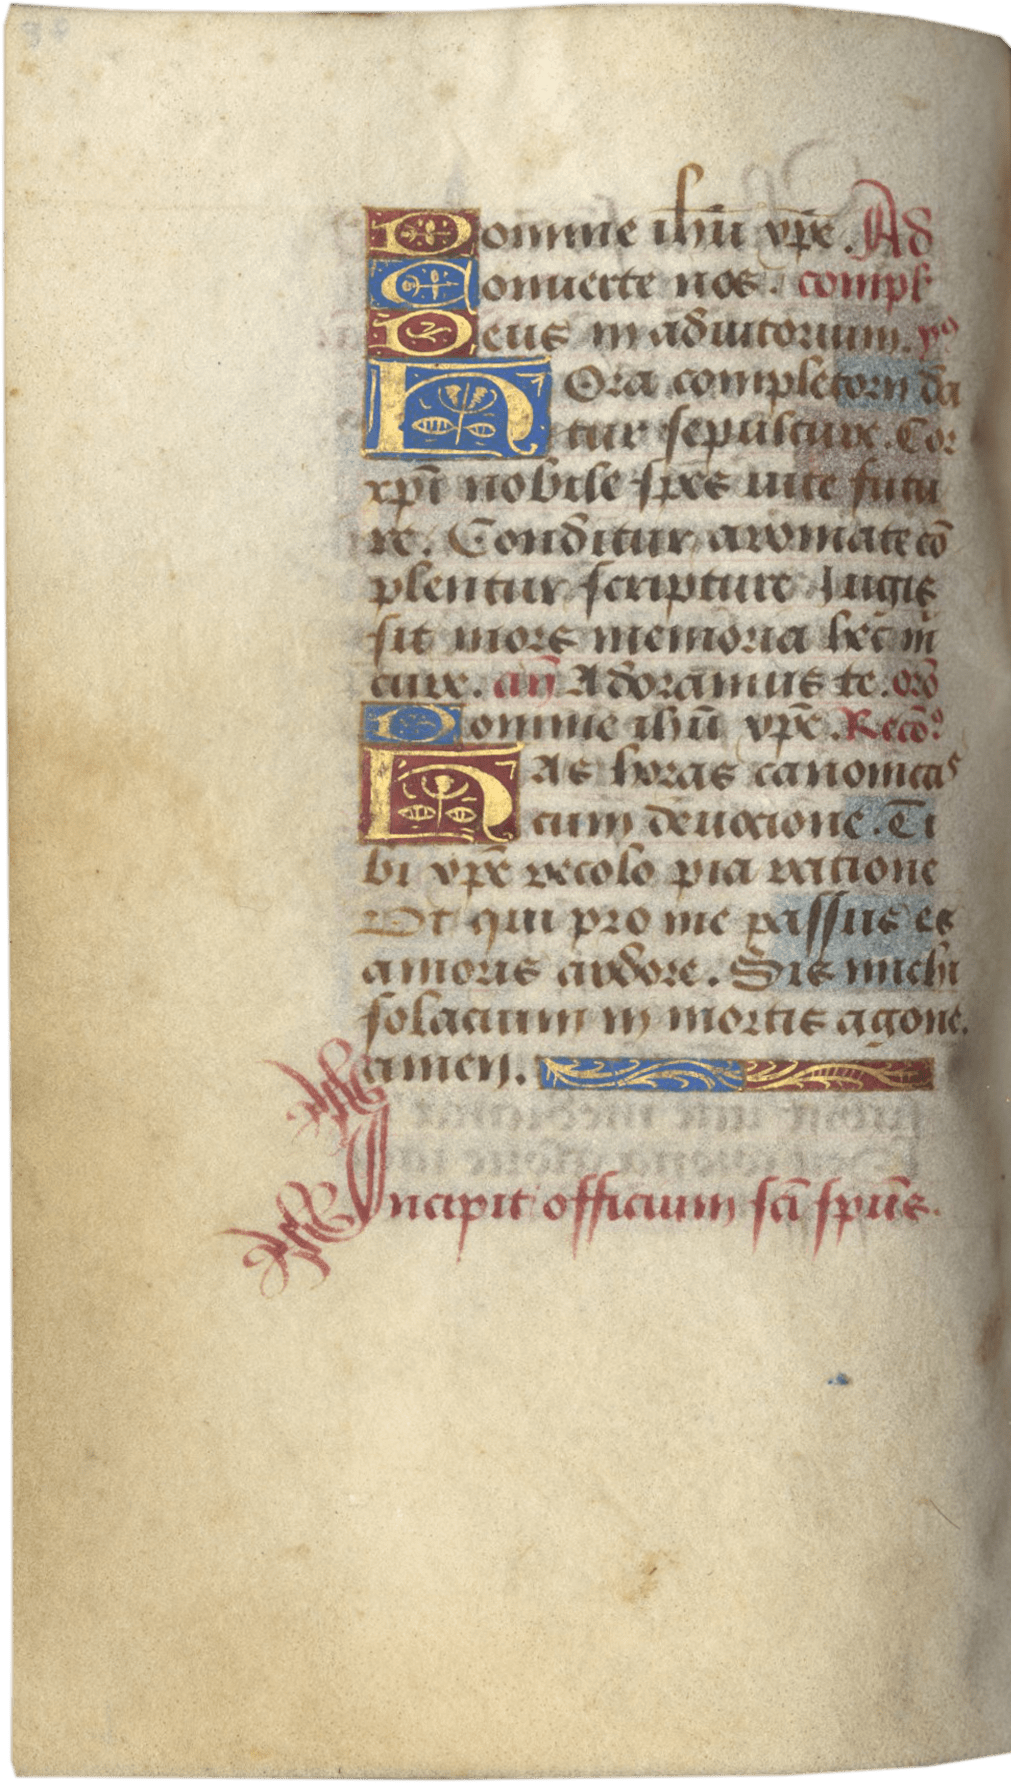 Domine ihū xpē. Ad
Conuerte nos. compl̄
Deus in adiutorium. yꝰ
Hora completorii da
tur sepulture. Cor
xpī nobile spes uite futu
re. Conditur aromate cō
plentur scripture Iugis
sit mors memoria hec m̄
cure. an̄ Adoramus te. orō
Domine ihū xpē. Recō.
Has horas canonicas
cum deuocione. Ti
bi xpē recolo pia racione
Vt qui pro me passus es
amoris ardore. Sis michi
solacium in mortis agone.
amen.
Incipit officium sc̄i spūs.